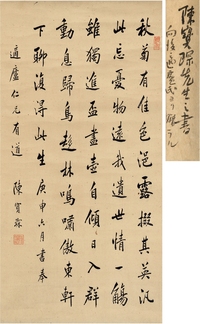 陳寶琛先生之書
秋菊有佳色浥露掇其英汎
此忘憂物遠我遺世情一觴
雖獨進盃盡壺自傾日入群
動息歸鳥趨林鳴嘯傲東軒
下聊復得此生 庚申六月書奉
適廬仁兄有道 陳寶琛